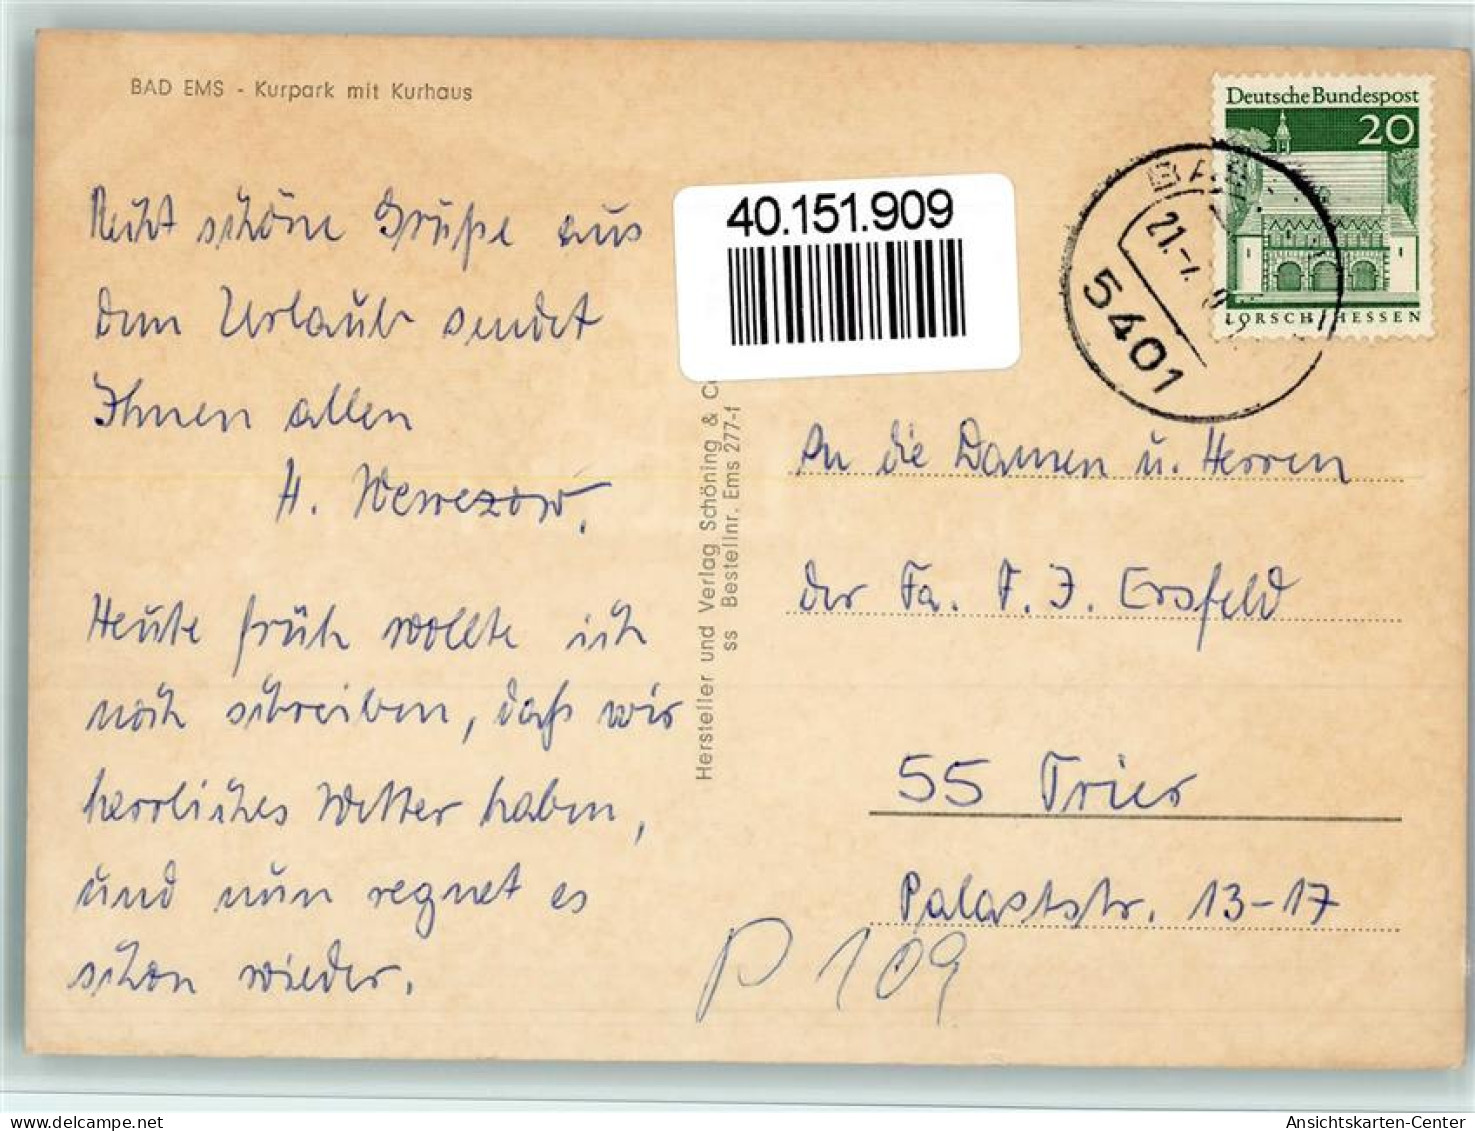 BAD EMS - Kurpark mit Kurhaus
Recht schöne Grüße aus
dem Urlaub sendet
Ihnen allen
H.
Heute früh wollte ich
noch schreiben, daß wir
herrliches Wetter haben,
und nun regnet es
schon wieder.
40.151.909
Hersteller und Verlag Schöning & C
ss Bestellnr. Ems 277-f
Deutsche Bundespost
20
LORSCH/HESSEN
21.-7.
5401
An die Damen u. Herren
der Fa. F. J. Ersfeld
55 Trier
Palaststr. 13-17
P 109
Ansichtskarten-Center